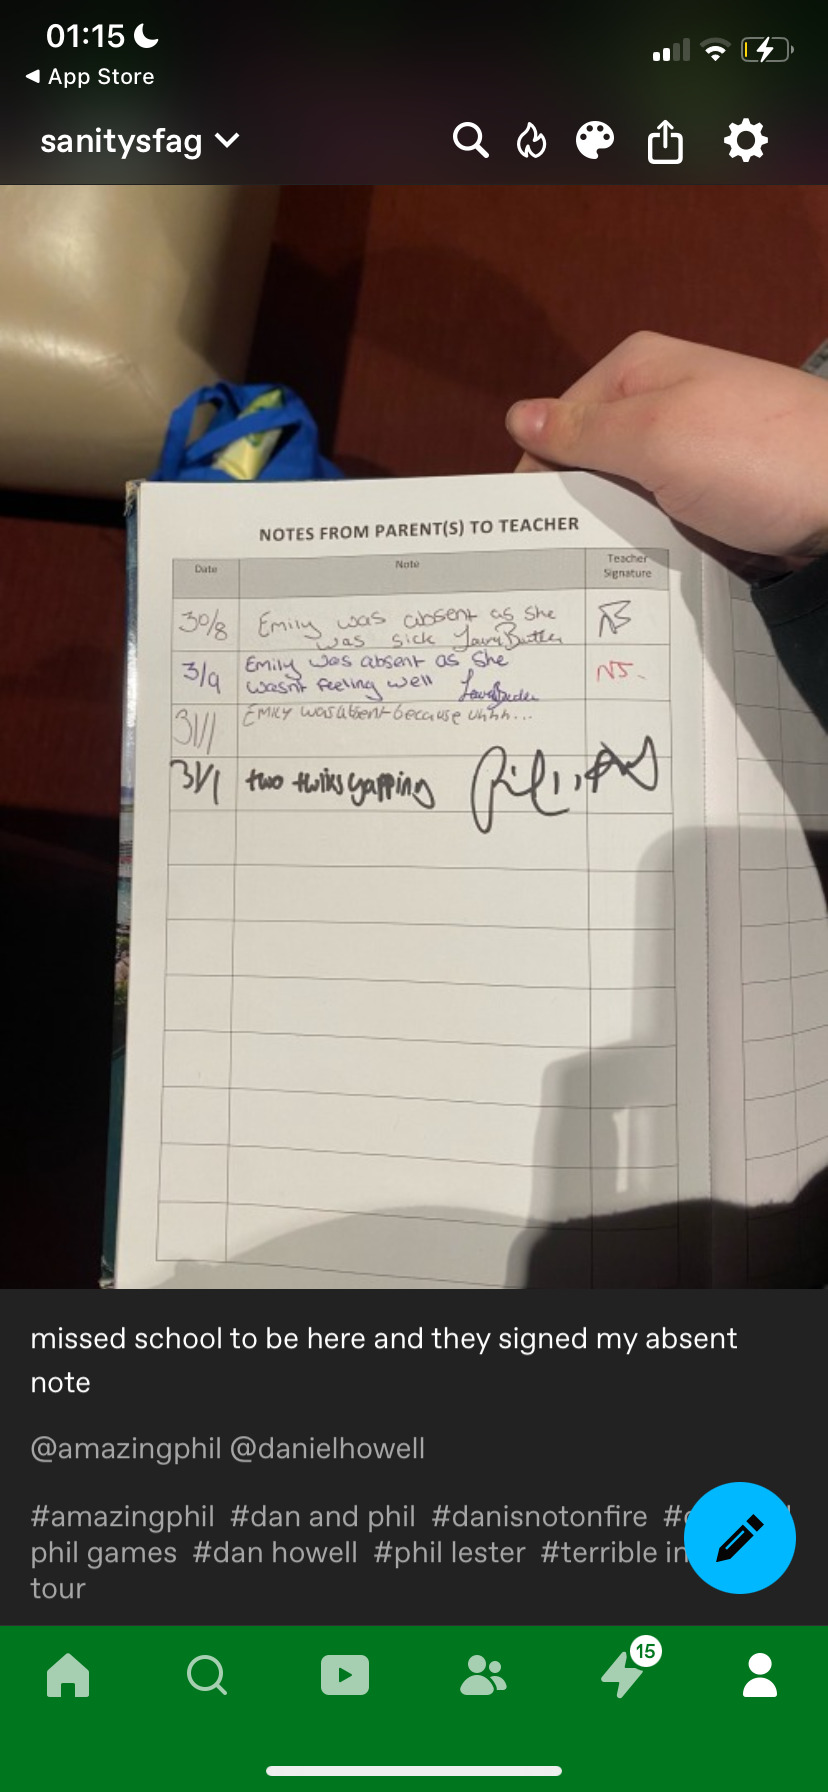 01:15
App Store
sanitysfag
NOTES FROM PARENT(S) TO TEACHER
Date Note Teacher Signature
30/8 Emily was absent as she
was sick
3/9 Emily was absent as she
wasn't feeling well NS.
31/1 Emily was absent because uhhh...
31/1 two twinks yapping
missed school to be here and they signed my absent
note
@amazingphil @danielhowell
#amazingphil #dan and phil #danisnotonfire
phil games #dan howell #phil lester #terrible
tour
15